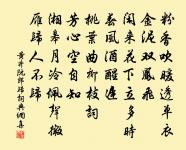 粉香吹暖透單衣
金泥雙鳳飛
閒來花下立多時
春風酒醒遲
桃葉曲柳枝詞
芳心空自知
湘皋月冷佩聲微
雁歸人不歸
黄升阮郎歸詩詞典網書